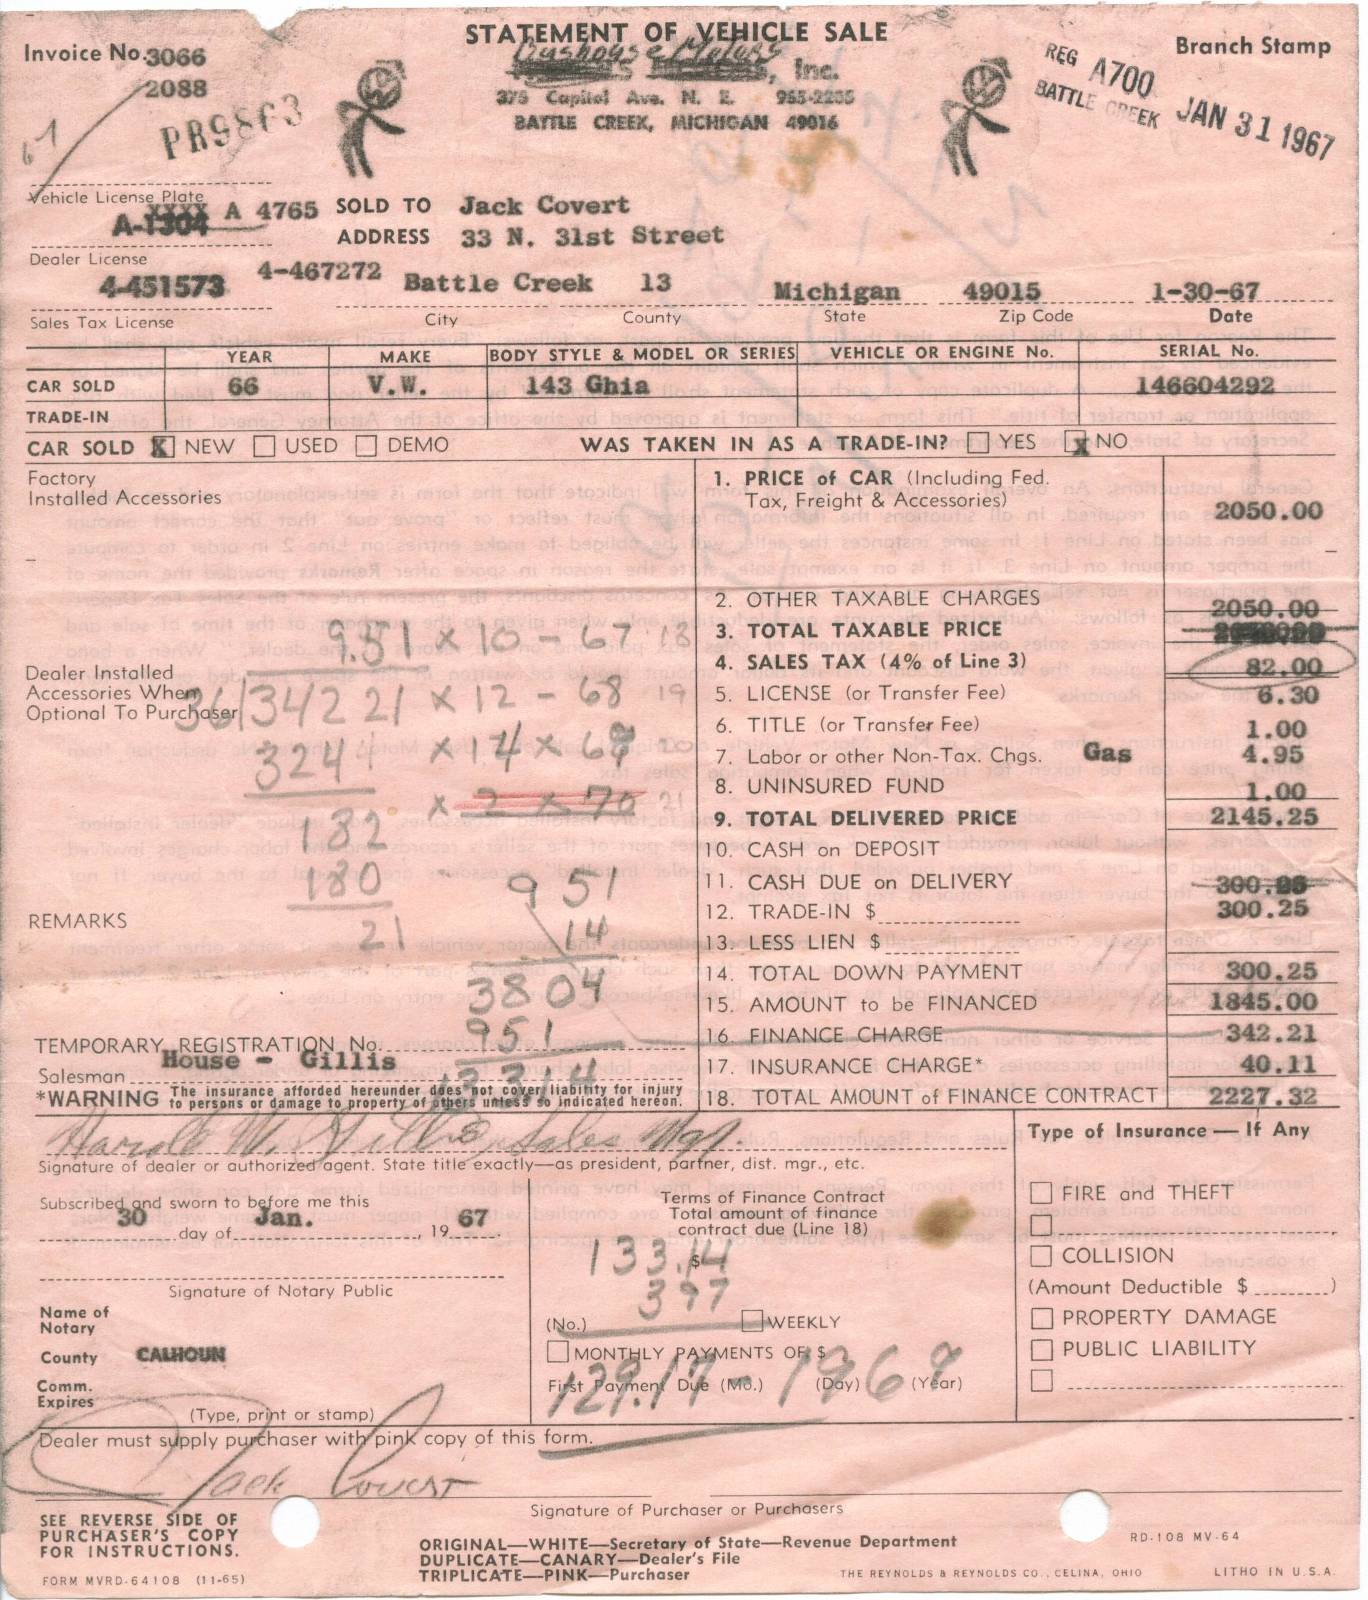 STATEMENT OF VEHICLE SALE
Invoice No. 3066
2088
Branch Stamp
Motors, Inc.
375 Capitol Ave. N. E. 965-2205
BATTLE CREEK, MICHIGAN 49016
REG A700
BATTLE CREEK JAN 31 1967
67
PR9863
Vehicle License Plate
A-1304 XXXX A 4765
SOLD TO Jack Covert
ADDRESS 33 N. 31st Street
Dealer License
4-451573 4-467272
Battle Creek 13 Michigan 49015 1-30-67
Sales Tax License City County State Zip Code Date
YEAR MAKE BODY STYLE & MODEL OR SERIES VEHICLE OR ENGINE No. SERIAL No.
CAR SOLD 66 V.W. 143 Ghia 146604292
TRADE-IN
CAR SOLD X NEW USED DEMO WAS TAKEN IN AS A TRADE-IN? YES X NO
Factory
Installed Accessories
1. PRICE of CAR (Including Fed.
Tax, Freight & Accessories) 2050.00
2. OTHER TAXABLE CHARGES
2050.00
3. TOTAL TAXABLE PRICE
4. SALES TAX (4% of Line 3) 82.00
5. LICENSE (or Transfer Fee) 6.30
6. TITLE (or Transfer Fee) 1.00
7. Labor or other Non-Tax. Chgs. Gas 4.95
8. UNINSURED FUND 1.00
9. TOTAL DELIVERED PRICE 2145.25
10. CASH on DEPOSIT
11. CASH DUE on DELIVERY 300.25
12. TRADE-IN $ 300.25
13. LESS LIEN $
14. TOTAL DOWN PAYMENT 300.25
15. AMOUNT to be FINANCED 1845.00
16. FINANCE CHARGE 342.21
17. INSURANCE CHARGE* 40.11
18. TOTAL AMOUNT of FINANCE CONTRACT 2227.32
Dealer Installed
Accessories When
Optional To Purchaser
9.51 x 10 - 67 18
36/342 21 x 12 - 68 19
3244 x 14 x 69 20
x 2 x 70 21
182
180
21
951
14
3804
951
13314
REMARKS
TEMPORARY REGISTRATION No.
Salesman House - Gillis
*WARNING The insurance afforded hereunder does not cover liability for injury
to persons or damage to property of others unless so indicated hereon.
Harold W. Gillis Sales Mgr
Signature of dealer or authorized agent. State title exactly—as president, partner, dist. mgr., etc.
Subscribed and sworn to before me this
30 day of Jan., 19 67
Signature of Notary Public
Name of
Notary
County CALHOUN
Comm.
Expires
(Type, print or stamp)
Terms of Finance Contract
Total amount of finance
contract due (Line 18)
$
133.14
397
(No.) WEEKLY
MONTHLY PAYMENTS OF $
First Payment Due (Mo.) (Day) (Year)
129.17 - 1969
Type of Insurance — If Any
FIRE and THEFT
COLLISION
(Amount Deductible $ )
PROPERTY DAMAGE
PUBLIC LIABILITY
Dealer must supply purchaser with pink copy of this form.
Jack Covert
Signature of Purchaser or Purchasers
SEE REVERSE SIDE OF
PURCHASER'S COPY
FOR INSTRUCTIONS.
FORM MVRD-64108 (11-65)
ORIGINAL—WHITE—Secretary of State—Revenue Department
DUPLICATE—CANARY—Dealer's File
TRIPLICATE—PINK—Purchaser
RD-108 MV-64
THE REYNOLDS & REYNOLDS CO., CELINA, OHIO LITHO IN U.S.A.